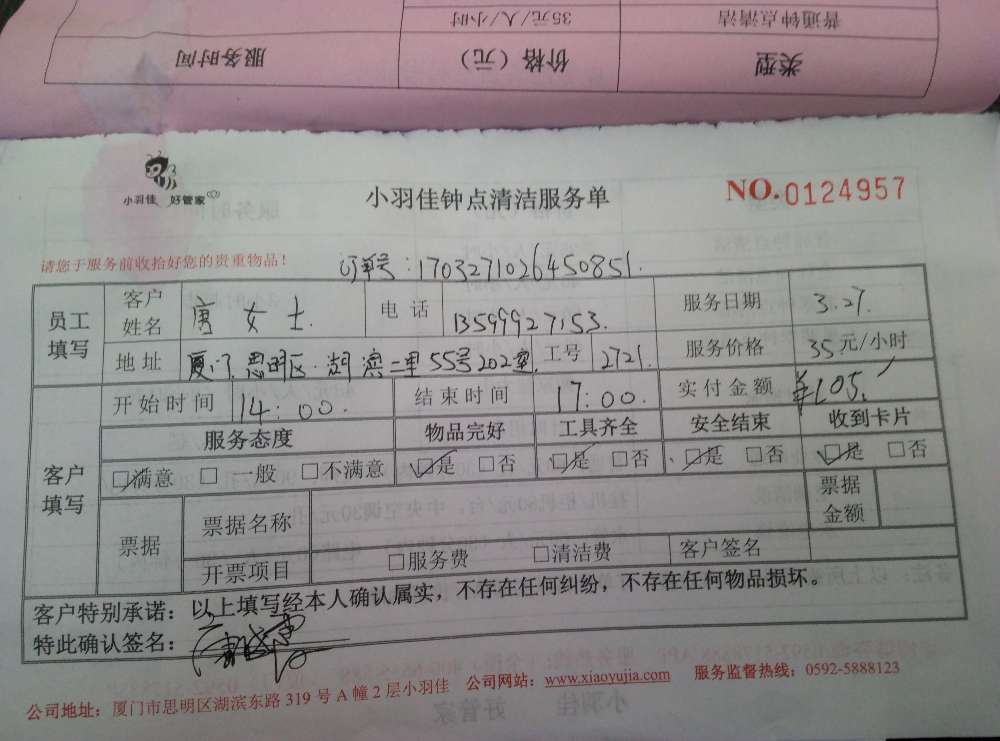 普通钟点清洁 35元/人/小时
类型 价格（元） 服务时间
小羽佳 好管家
小羽佳钟点清洁服务单
NO.0124957
请您于服务前收拾好您的贵重物品！
订单号：1703271026450851.
员工填写 客户姓名 唐女士. 电话 13599927153. 服务日期 3.27.
地址 厦门.思明区.湖滨二里55号202室. 工号 2721. 服务价格 35元/小时
客户填写 开始时间 14:00. 结束时间 17:00. 实付金额 ¥105.
服务态度 物品完好 工具齐全 安全结束 收到卡片
☑满意 □一般 □不满意 ☑是 □否 ☑是 □否 ☑是 □否 ☑是 □否
票据 票据名称 票据金额
开票项目 □服务费 □清洁费 客户签名
客户特别承诺：以上填写经本人确认属实，不存在任何纠纷，不存在任何物品损坏。
特此确认签名：
公司地址：厦门市思明区湖滨东路 319 号 A 幢 2 层小羽佳 公司网站：www.xiaoyujia.com 服务监督热线：0592-5888123
小羽佳 好管家